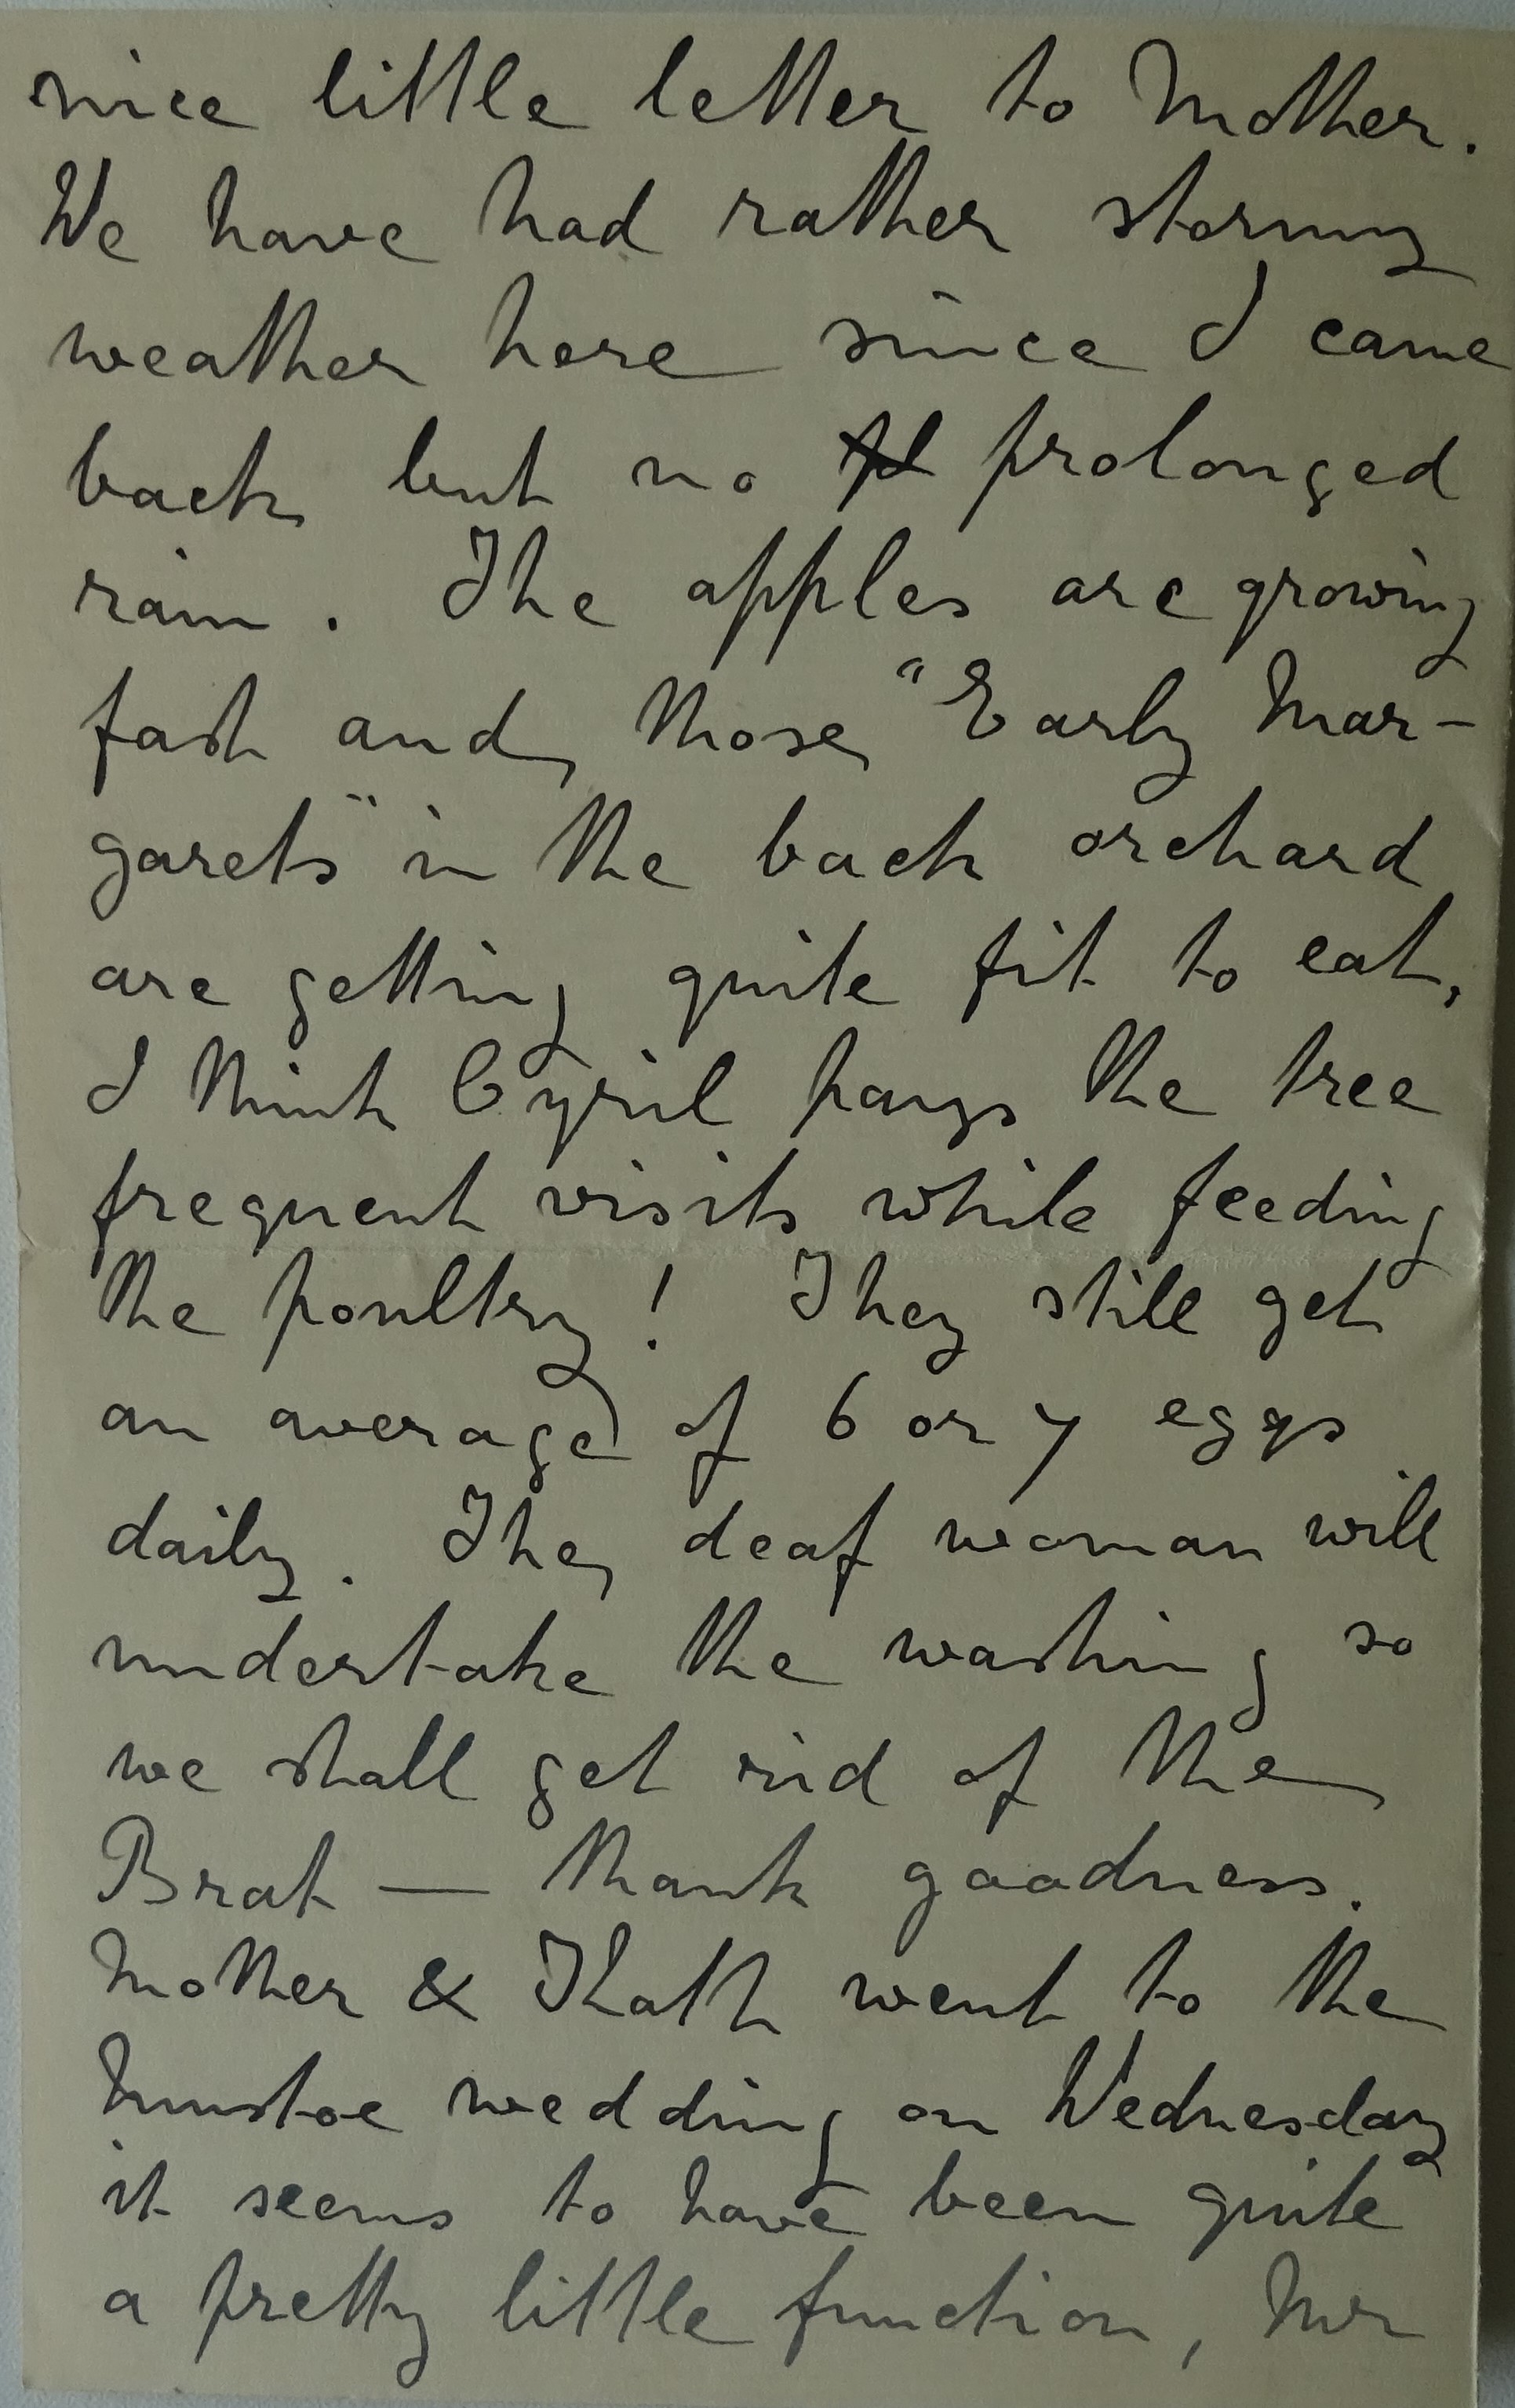 nice little letter to Mother.
We have had rather stormy
weather here since I came
back but no prolonged
rain. The apples are growing
fast and those "Early Mar-
garets" in the back orchard
are getting quite fit to eat,
I think Cyril pays the tree
frequent visits while feeding
the poultry! They still get
an average of 6 or 7 eggs
daily. The deaf woman will
undertake the washing so
we shall get rid of the
Brat — thank goodness.
Mother & Kath went to the
Mustoe wedding on Wednesday
it seems to have been quite
a pretty little function, Mr